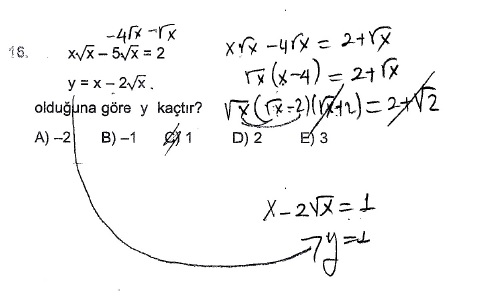 -4√x -√x
16. x√x – 5√x = 2
y = x – 2√x .
olduğuna göre y kaçtır?
A) –2 B) –1 C) 1 D) 2 E) 3
x√x - 4√x = 2+√x
√x (x-4) = 2+√x
√x (√x-2)(√x+2) = 2+√2
x - 2√x = 1
y = 1